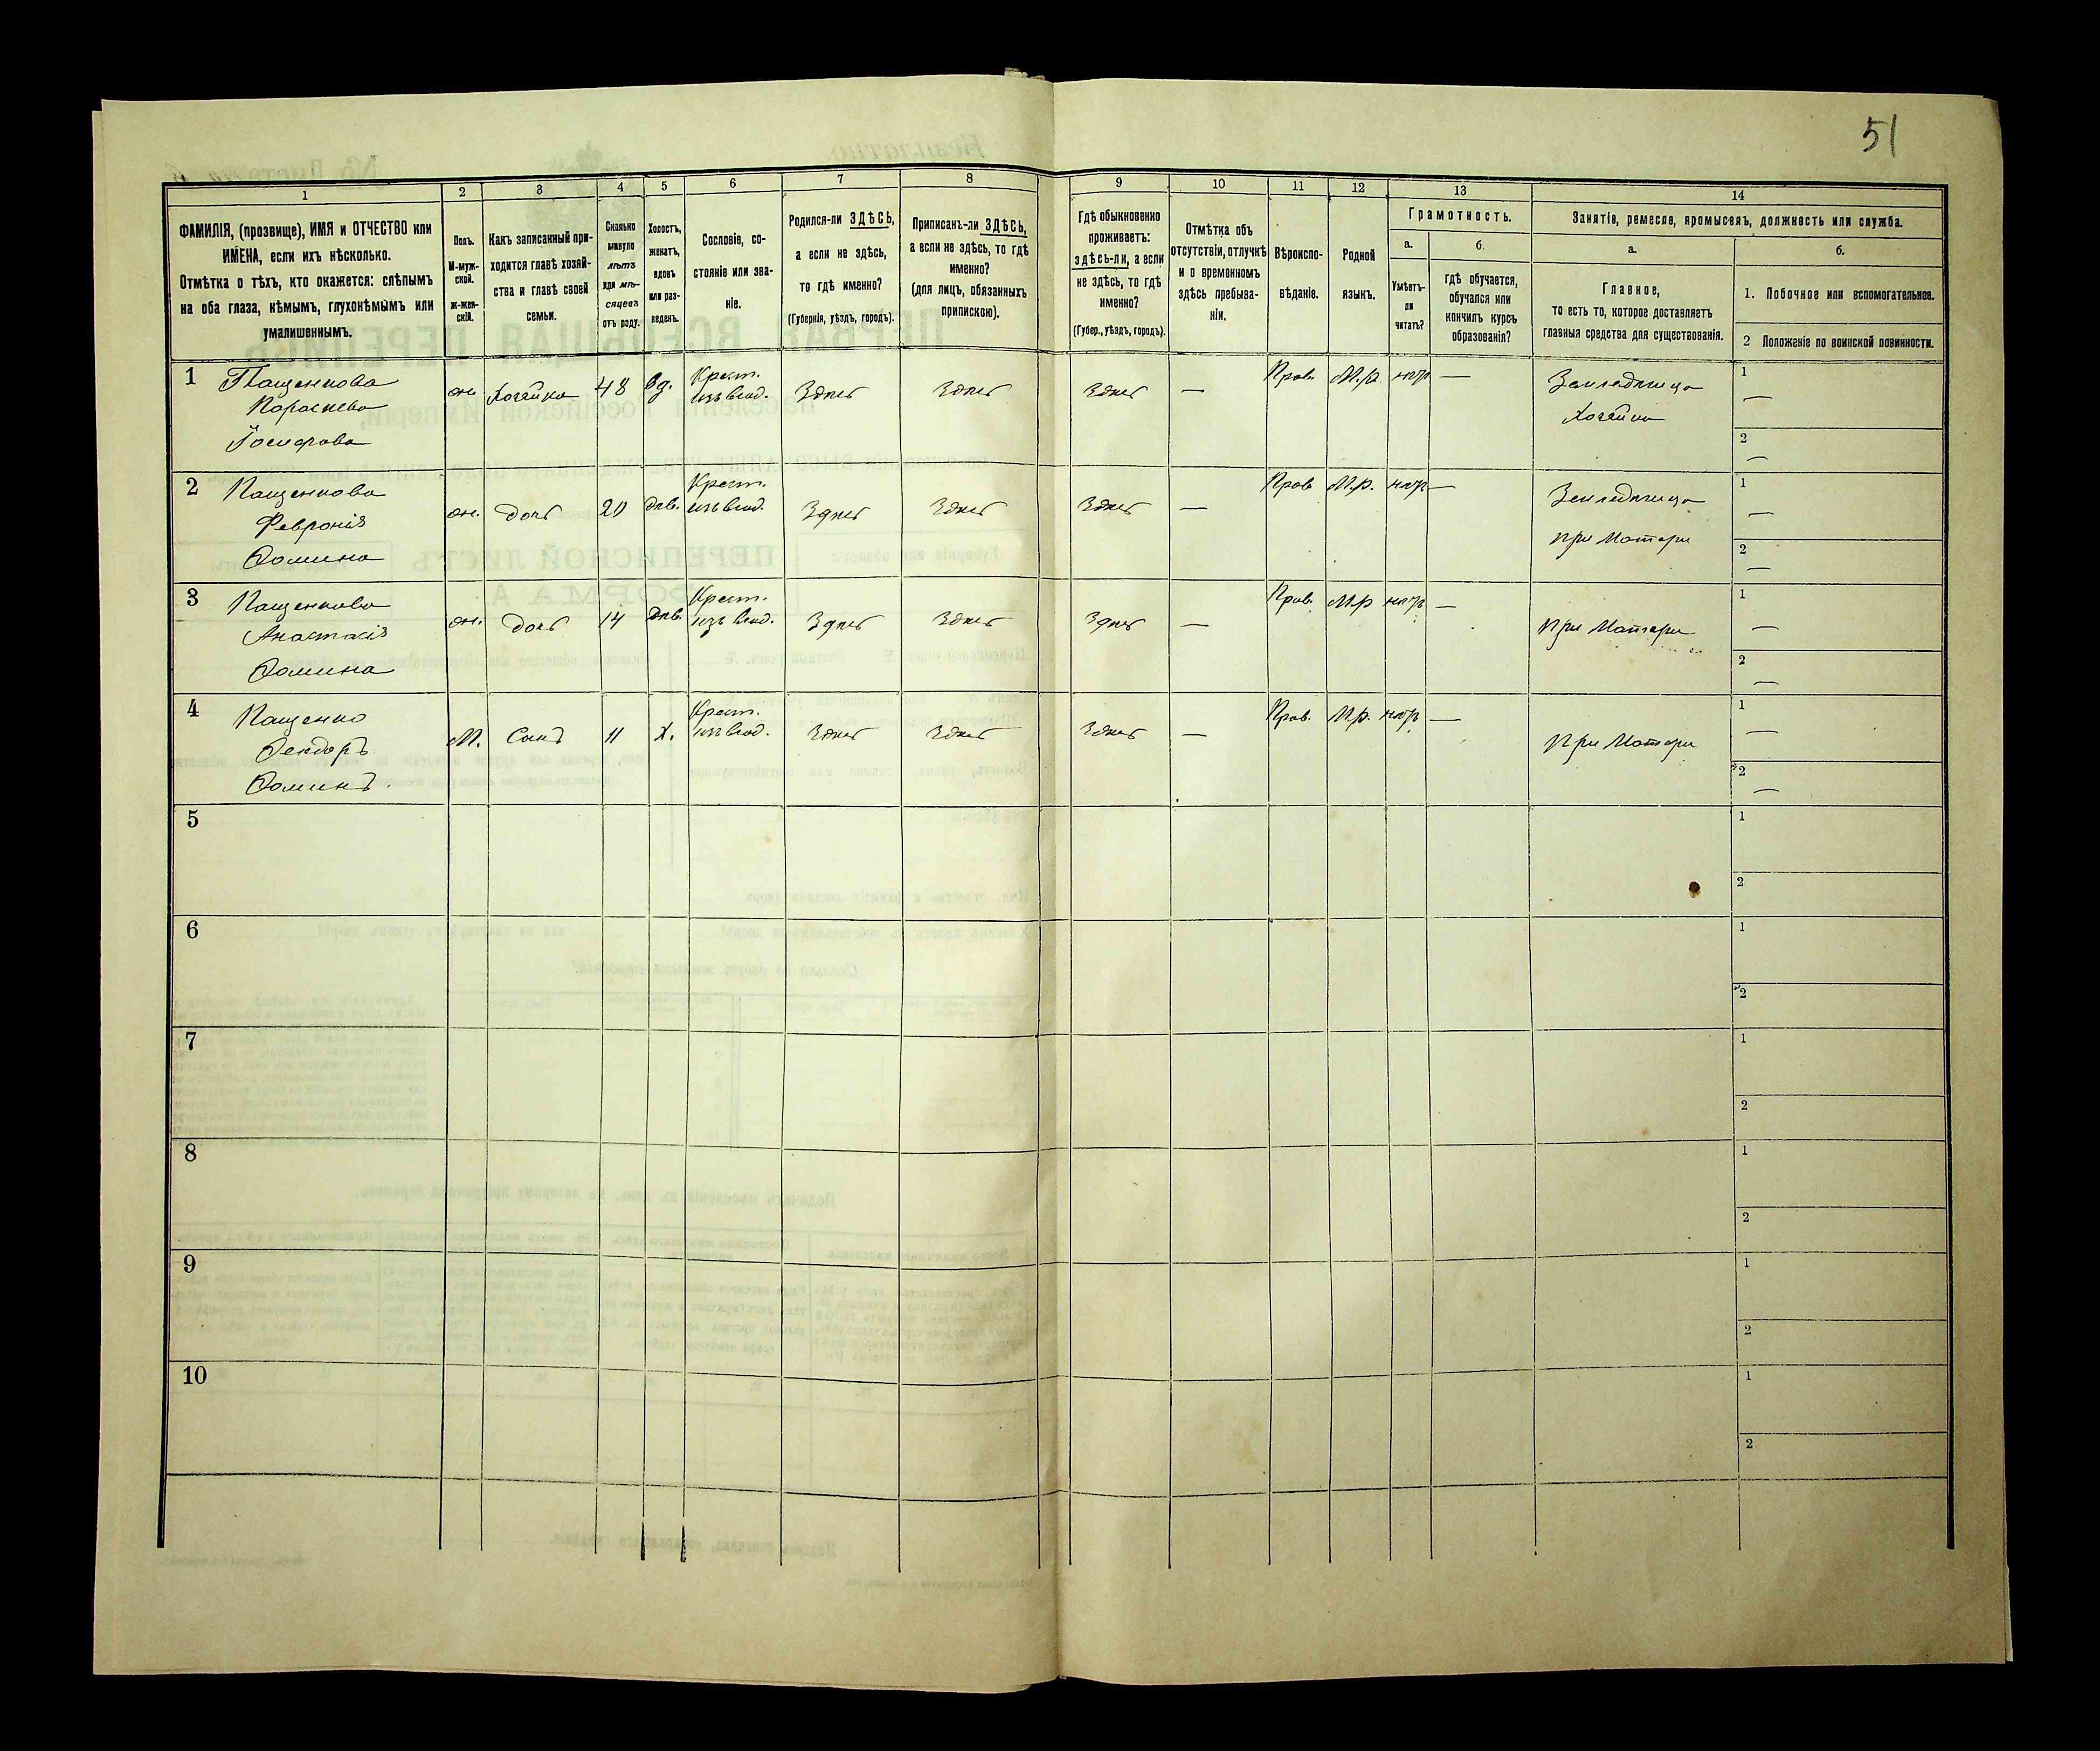 51
1
2
3
4
5
6
7
8
9
10
11
12
13
14
ФАМИЛІЯ, (прозвище), ИМЯ и ОТЧЕСТВО или
ИМЕНА, если ихъ нѣсколько.
Отмѣтка о тѣхъ, кто окажется: слѣпымъ
на оба глаза, нѣмымъ, глухонѣмымъ или
умалишеннымъ.
Полъ.
М-муж-
ской.
Ж-жен-
скій.
Какъ записанный при-
ходится главѣ хозяй-
ства и главѣ своей
семьи.
Сколько
минуло
лѣтъ
или мѣ-
сяцевъ
отъ роду.
Холостъ,
женатъ,
вдовъ
или раз-
веденъ.
Сословіе, со-
стояніе или зва-
ніе.
Родился-ли ЗДѢСЬ,
а если не здѣсь,
то гдѣ именно?
(Губернія, уѣздъ, городъ).
Приписанъ-ли ЗДѢСЬ,
а если не здѣсь, то гдѣ
именно?
(для лицъ, обязанныхъ
припискою).
Гдѣ обыкновенно
проживаетъ:
здѣсь-ли, а если
не здѣсь, то гдѣ
именно?
(Губер., уѣздъ, городъ).
Отмѣтка объ
отсутствіи, отлучкѣ
и о временномъ
здѣсь пребыва-
ніи.
Вѣроиспо-
вѣданіе.
Родной
языкъ.
Грамотность.
а.
Умѣетъ-
ли
читать?
б.
гдѣ обучается,
обучался или
кончилъ курсъ
образованія?
Занятіе, ремесло, промыселъ, должность или служба.
а.
Главное,
то есть то, которое доставляетъ
главныя средства для существованія.
б.
1. Побочное или вспомогательное.
2 Положеніе по воинской повинности.
1 Пащенкова
Параскева
Іосифова
ж. Хозяйка 48 вд. Крест.
изъ влад. Здѣсь Здѣсь Здѣсь — Прав. М.р. нѣтъ — Земледѣлица
Хозяйка
1 —
2 —
2 Пащенкова
Февронія
Фомина
ж. дочь 20 дѣв. Крест.
изъ влад. Здѣсь Здѣсь Здѣсь — Прав. М.р. нѣтъ — Земледѣлица
при Матери
1 —
2 —
3 Пащенкова
Анастасія
Фомина
ж. дочь 14 дѣв. Крест.
изъ влад. Здѣсь Здѣсь Здѣсь — Прав. М.р нѣтъ — при Матери
1 —
2 —
4 Пащенко
Феодоръ
Фоминъ
М. Сынъ 11 х. Крест.
изъ влад. Здѣсь Здѣсь Здѣсь — Прав. М.р. нѣтъ — при Матери
1 —
2 —
5
1
2
6
1
2
7
1
2
8
1
2
9
1
2
10
1
2